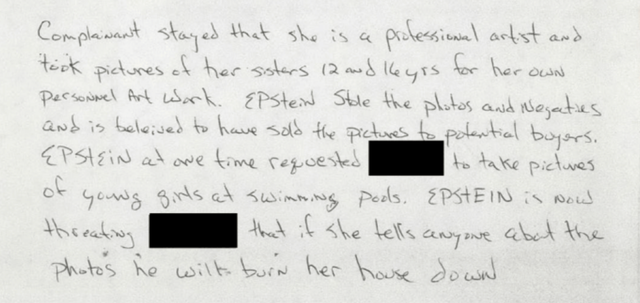 Complainant stayed that she is a professional artist and
took pictures of her sisters 12 and 16 yrs for her own
personnel Art work. EPstein Stole the photos and Negaties
and is beleived to have sold the pictures to potential buyers.
EPSTEIN at one time requested to take pictures
of young girls at swimming pools. EPSTEIN is now
threating that if she tells anyone about the
photos he will burn her house down